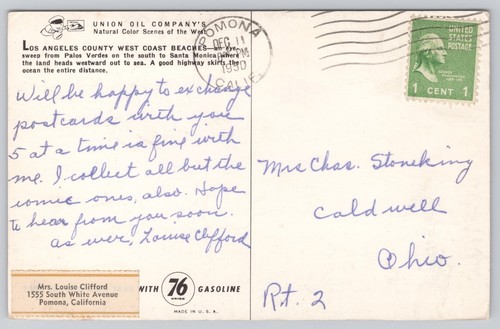 UNION OIL COMPANY'S
Natural Color Scenes of the West
LOS ANGELES COUNTY WEST COAST BEACHES—an eye
sweep from Palos Verdes on the south to Santa Monica where
the land heads westward out to sea. A good highway skirts the
ocean the entire distance.
POMONA
DEC 11
PM
1950
CALIF.
UNITED STATES
POSTAGE
1 CENT 1
Will be happy to exchange
postcards with you
5 at a time is fine with
me. I collect all but the
comic ones, also. Hope
to hear from you soon.
As ever, Louise Clifford
Mrs Chas. Stoneking
Caldwell
Ohio.
Rt. 2
Mrs. Louise Clifford
1555 South White Avenue
Pomona, California
WITH 76 GASOLINE
UNION
MADE IN U.S.A.